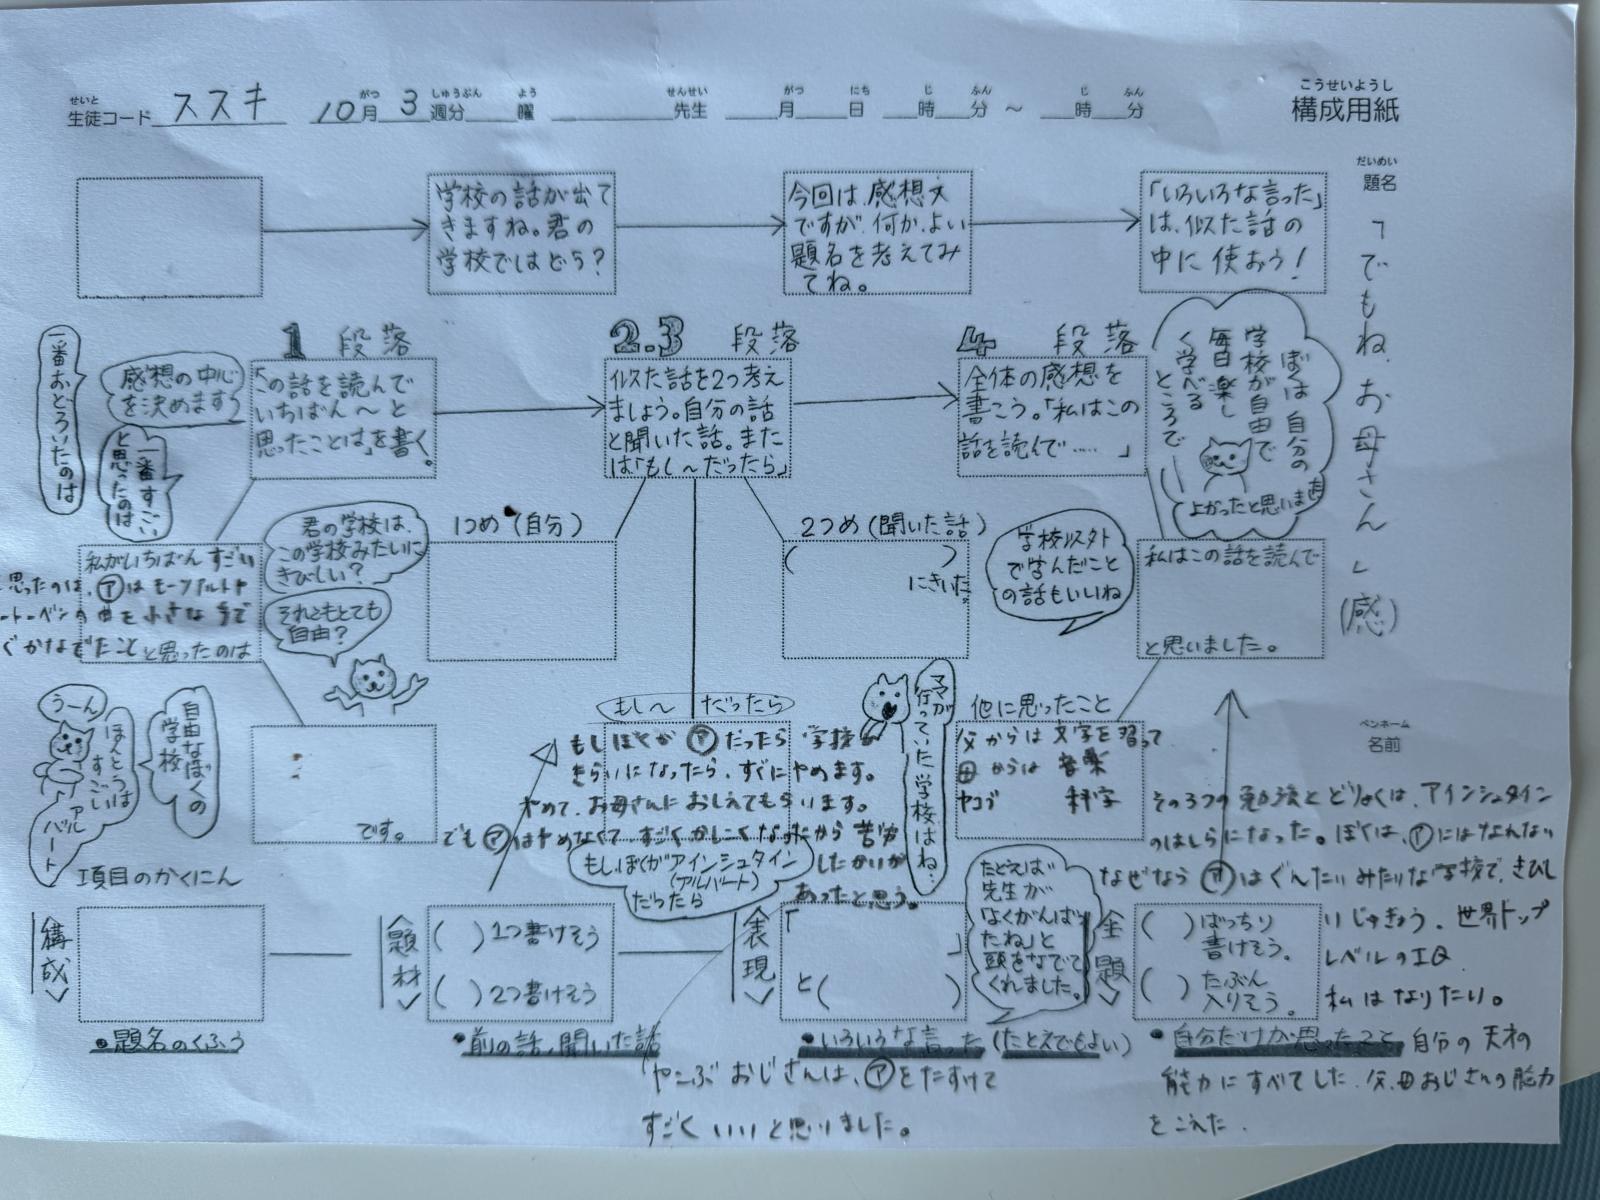 せいと
生徒コード スズキ 10月 3週分 曜 先生 月 日 時 分 ～ 時 分
がつ しゅうぶん よう せんせい がつ にち じ ふん じ ふん
こうせいようし
構成用紙
だいめい
題名
「でもね、お母さん」(感)
ペンネーム
名前
学校の話が出て
きますね。君の
学校ではどう？
今回は、感想文
ですが、何か、よい
題名を考えてみ
てね。
「いろいろな言った」
は、似た話の
中に使おう！
1 段落
感想の中心
を決めます
一番おどろいたのは
一番すごい
と思ったのは
「この話を読んで
いちばん～と
思ったことは」を書く。
2.3 段落
似た話を2つ考え
ましょう。自分の話
と聞いた話。また
は「もし～だったら」
4 段落
全体の感想を
書こう。「私はこの
話を読んで……」
ぼくは自分の
学校が自由で
毎日楽し
く学べる
ところで
よかったと思います
私がいちばんすごい
思ったのは、㋐はモーツアルトや
ートーベンの曲を小さな手で
ぐかなでたことと思ったのは
君の学校は、
この学校みたいに
きびしい？
それともとても
自由？
1つめ(自分)
2つめ(聞いた話)
( )
にきいた。
学校以外
で学んだこと
の話もいいね
私はこの話を読んで
と思いました。
うーん
ほんとうは
すごい
アル
バート
自由なぼくの
学校
です。
もし～だったら
もしぼくが㋐だったら学校が
きらいになったら、すぐにやめます。
やめて、お母さんにおしえてもらいます。
でも㋐はやめなくて、すごくかしこくなったから苦労
したかいが
あったと思う。
もし、ぼくがアインシュタイン
(アルバート)
だったら
ママが
行っていた学校はね…
他に思ったこと
父からは文字を習って
母からは音楽
ヤコブ 科学
その3つの勉強とどりょくは、アインシュタイン
のはしらになった。ぼくは、㋐にはなれない
なぜならはぐんたいみたいな学校で、きびし
いじゅぎょう、世界トップ
レベルのIQ
私はなりたい。
項目のかくにん
構成
題材
( )1つ書けそう
( )2つ書けそう
表現
「
」
と( )
たとえば
先生が
「よくがんばっ
たね」と
頭をなでて
くれました。
主題
( )ばっちり
書けそう。
( )たぶん
入りそう。
・題名のくふう
・前の話、聞いた話
・いろいろな言った(たとえでもよい)
・自分だけが思ったこと 自分の天才の
能力にすべてした、父、母おじさんの能力
をこえた.
ヤコブおじさんは、㋐をたすけて
すごくいいと思いました。